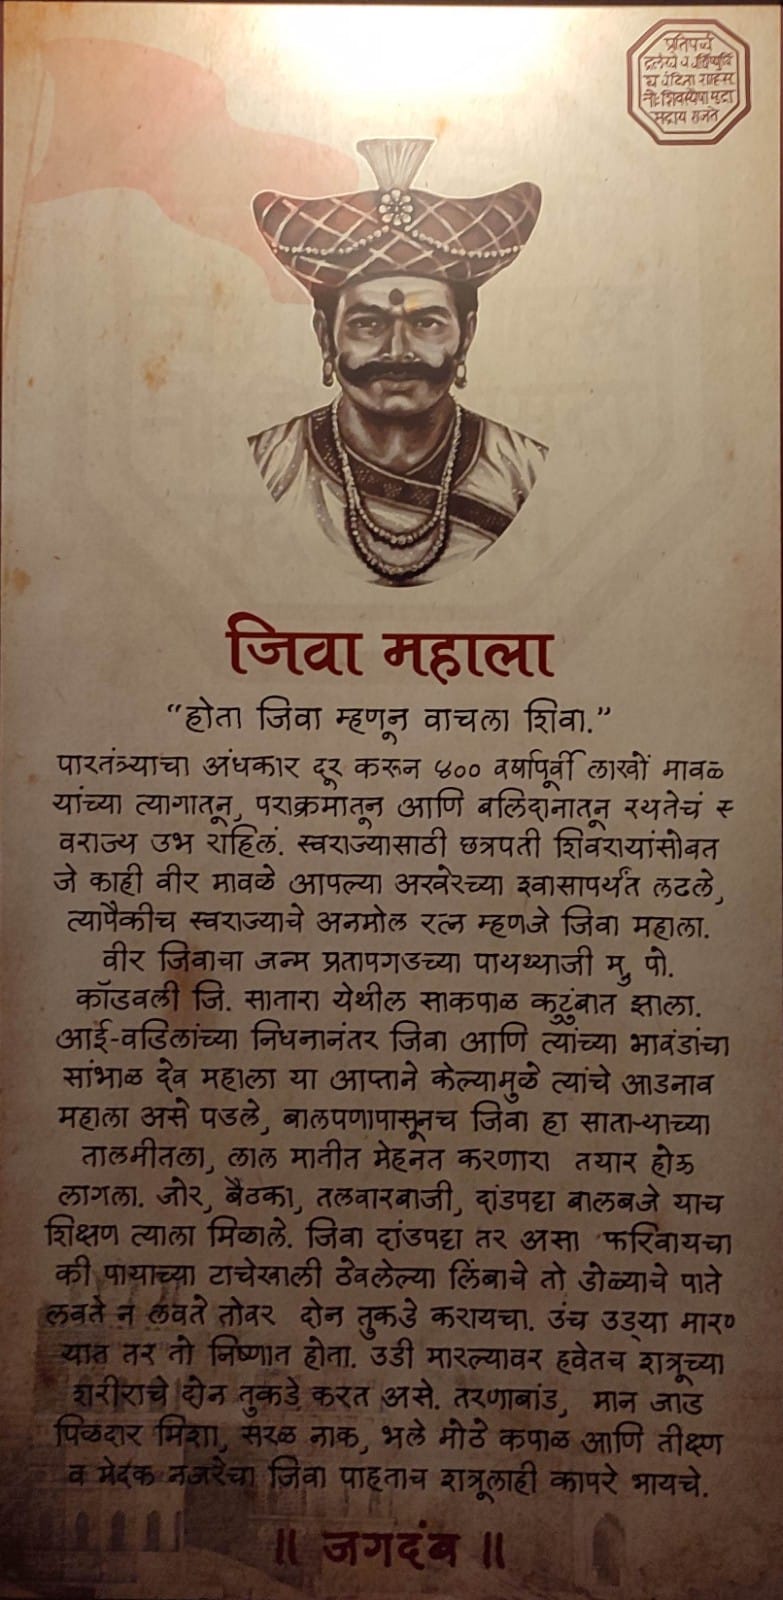 प्रतिपच्चं
द्रलेखेव वर्धिष्णुर्वि
श्व वंदिता शाहसू
नोः शिवस्यैषा मुद्रा
भद्राय राजते
जिवा महाला
“होता जिवा म्हणून वाचला शिवा.”
पारतंत्र्याचा अंधकार दूर करून ४०० वर्षापूर्वी लाखों मावळ
यांच्या त्यागातून, पराक्रमातून आणि बलिदानातून रयतेचं स्
वराज्य उभ राहिलं. स्वराज्यासाठी छत्रपती शिवरायांसोबत
जे काही वीर मावळे आपल्या अखेरच्या श्वासापर्यंत लढले,
त्यापैकीच स्वराज्याचे अनमोल रत्न म्हणजे जिवा महाला.
वीर जिवाचा जन्म प्रतापगडच्या पायथ्याजी मु. पो.
कोंडवली जि. सातारा येथील साकपाळ कुटुंबात झाला.
आई-वडिलांच्या निधनानंतर जिवा आणि त्यांच्या भावंडांचा
सांभाळ देव महाला या आप्ताने केल्यामुळे त्यांचे आडनाव
महाला असे पडले, बालपणापासूनच जिवा हा साताऱ्याच्या
तालमीतला, लाल मातीत मेहनत करणारा तयार होऊ
लागला. जोर, बैठका, तलवारबाजी, दांडपट्टा बालबजे याच
शिक्षण त्याला मिळाले. जिवा दांडपट्टा तर असा फिरवायचा
की पायाच्या टाचेखाली ठेवलेल्या लिंबाचे तो डोळ्याचे पाते
लवते न लवते तोवर दोन तुकडे करायचा. उंच उड्या मारण
यात तर तो निष्णात होता. उडी मारल्यावर हवेतच शत्रूच्या
शरीराचे दोन तुकडे करत असे. तरणाबांड, मान जाड
पिळदार मिशा, सरळ नाक, भले मोठे कपाळ आणि तीक्ष्ण
व भेदक नजरेचा जिवा पाहताच शत्रूलाही कापरे भायचे.
॥ जगदंब ॥